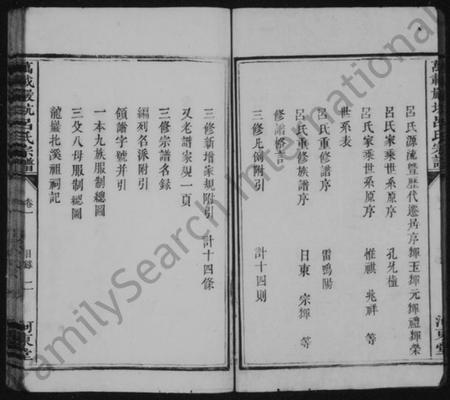 呂氏源流暨歷代遷居序 輝玉 輝元 輝禮 輝榮
呂氏家乘世系原序 孔
呂氏家乘世系原序 惟祺 兆祥 等
世系表
呂氏重修譜序 雷鳴陽
呂氏重修族譜序 日東 宗輝 等
修譜
三修凡例附引 計十四則
三修新增家規附引 計十四條
又老譜家規一頁
三修宗譜名錄
編列名派附引
領譜字號并引
一本九族服制總圖
三父八母服制總圖
龍巖北溪祖祠記
萬載 呂氏宗譜
卷一
目錄
二
河東堂
FamilySearch International